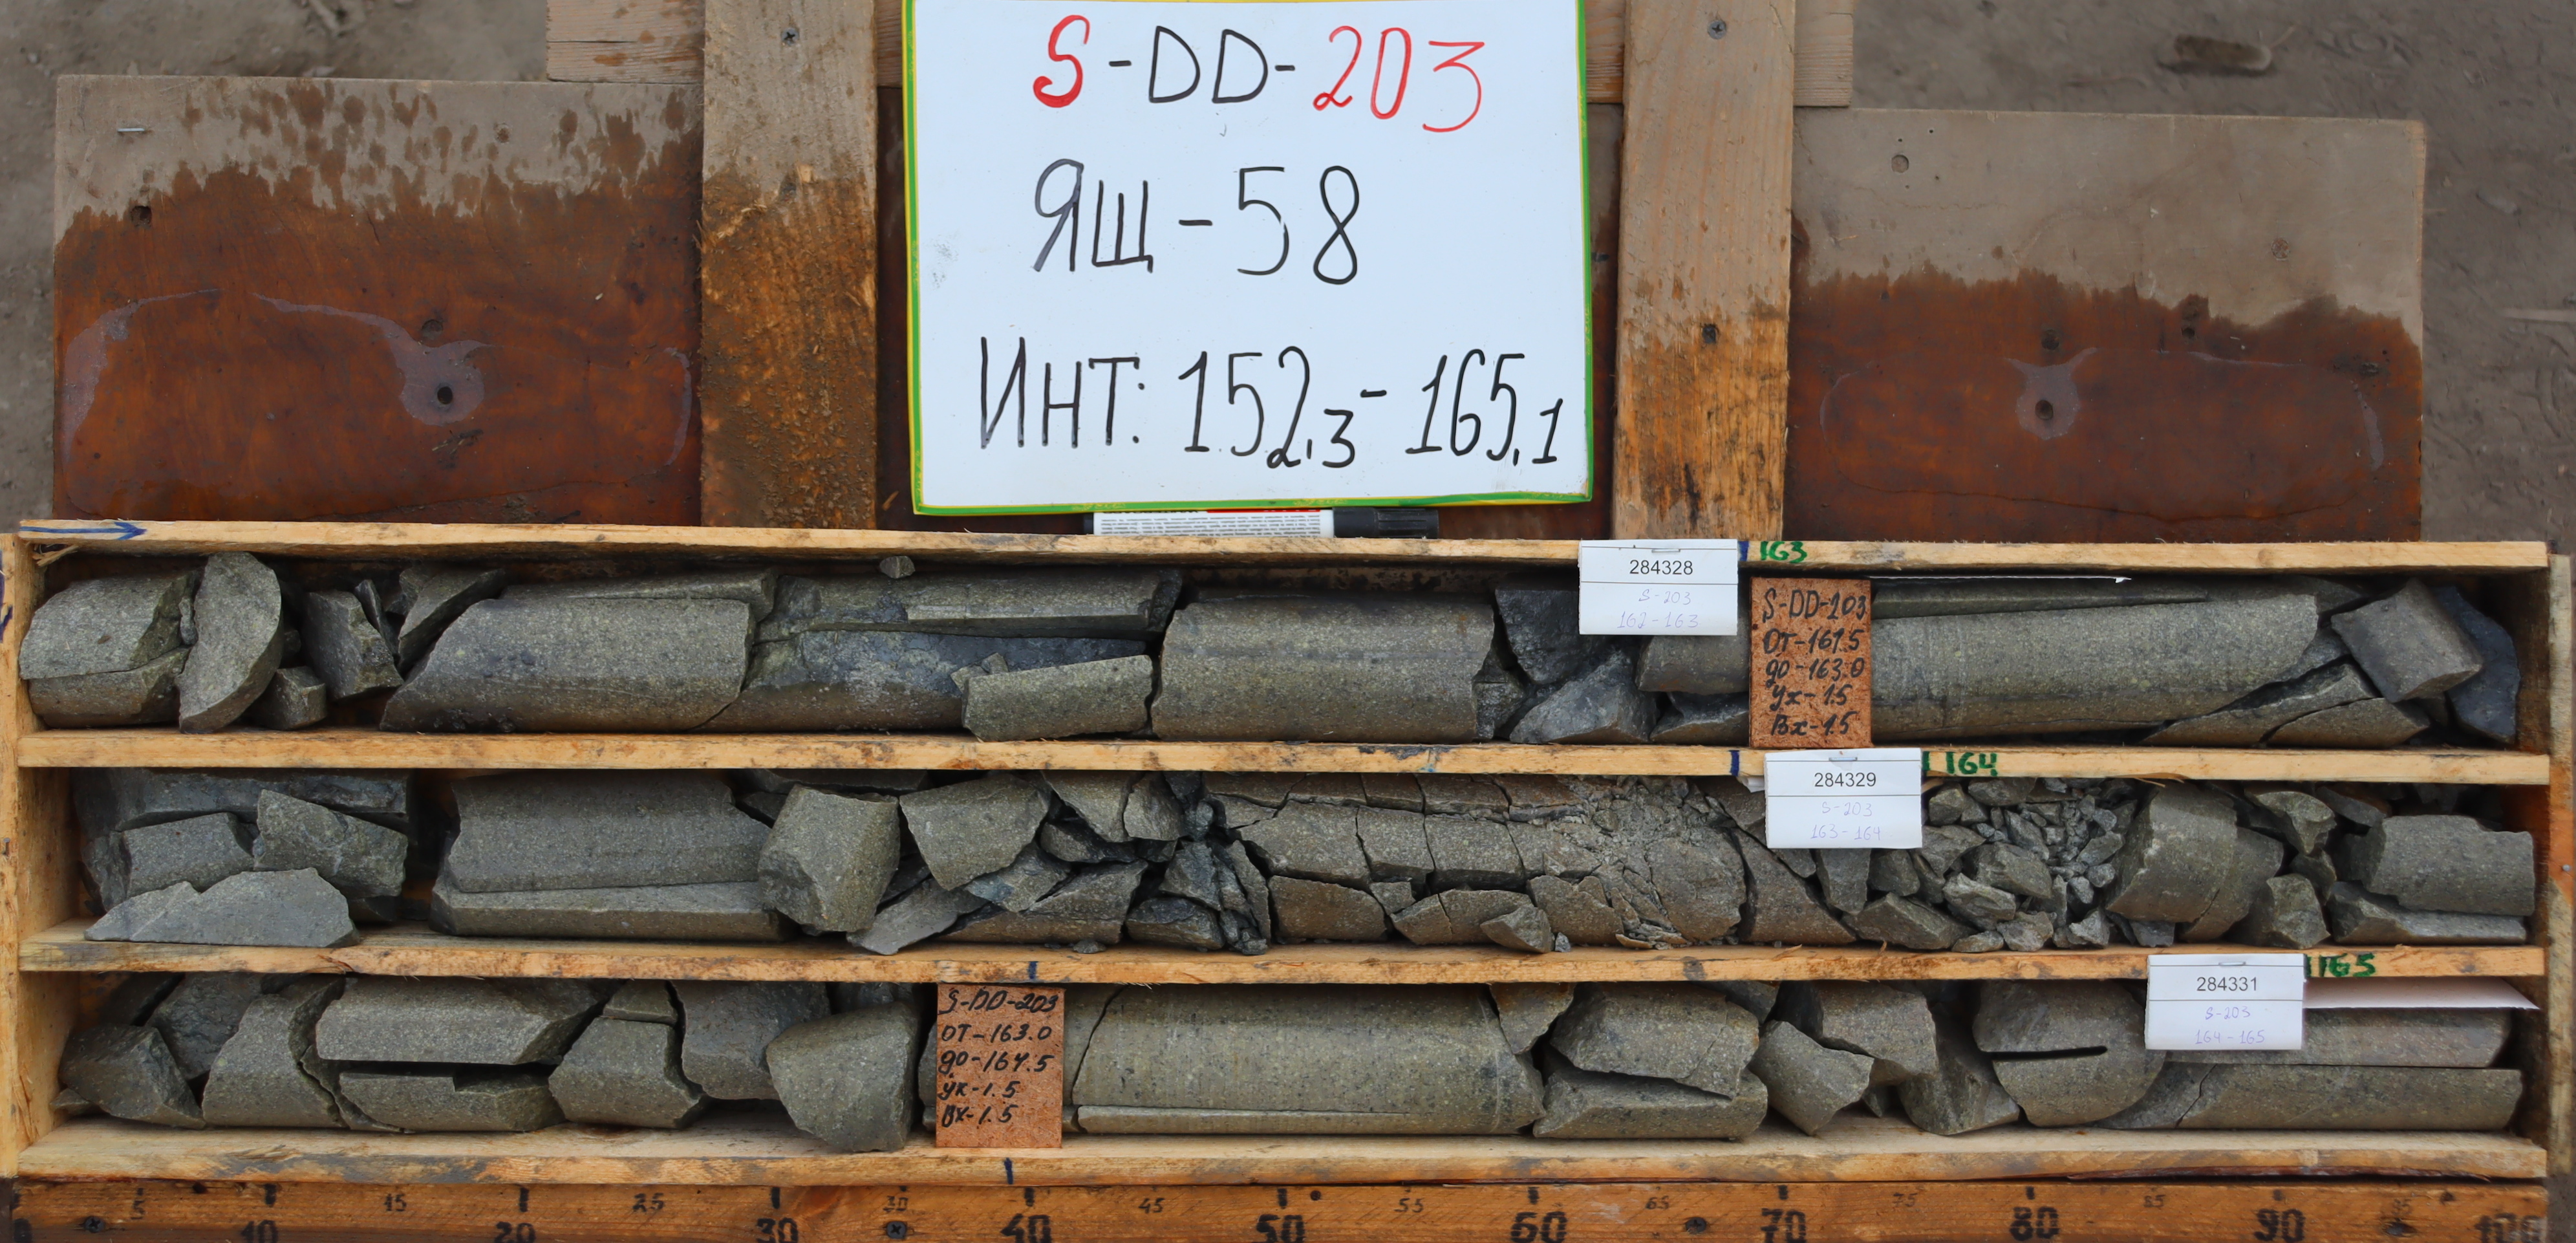 S-DD-203
ЯЩ-58
ИНТ: 152,3-165,1
163
284328
S-203
162-163
S-DD-203
ОТ-161.5
до-163.0
Ух-1.5
Вх-1.5
164
284329
S-203
163-164
165
284331
S-203
164-165
S-DD-203
ОТ-163.0
до-164.5
Ух-1.5
Вх-1.5
5 10 15 20 25 30 40 45 50 55 60 65 70 75 80 85 90 95 100